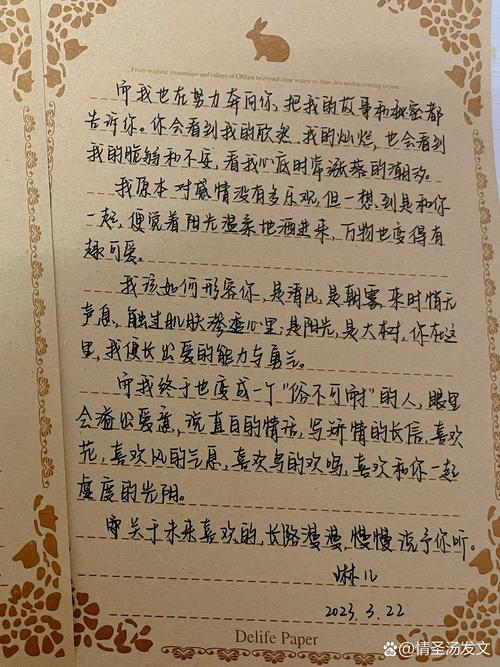 而我也在努力奔向你，把我的故事和秘密都
告诉你。你会看到我的欣然、我的灿烂，也会看到
我的脆弱和不安，看我心底时常涨落的潮汐。
我原本对感情没有多乐观，但一想到是和你
一起，便觉着阳光温柔地洒进来，万物也变得有
趣可爱。
我该如何形容你，是清风，是朝雾，来时悄无
声息，触过肌肤渗透心里；是阳光，是大树，你在这
里，我便长出爱的能力与勇气。
而我终于也变成一个“俗不可耐”的人，眼里
会溢出爱意，说直白的情话，写矫情的长信，喜欢
花，喜欢风的气息，喜欢鸟的欢鸣，喜欢和你一起
虚度的光阴。
而关于未来喜欢的，长路漫漫，慢慢说予你听。
淋儿
2023.3.22
Delife Paper
百家号/情圣汤发文